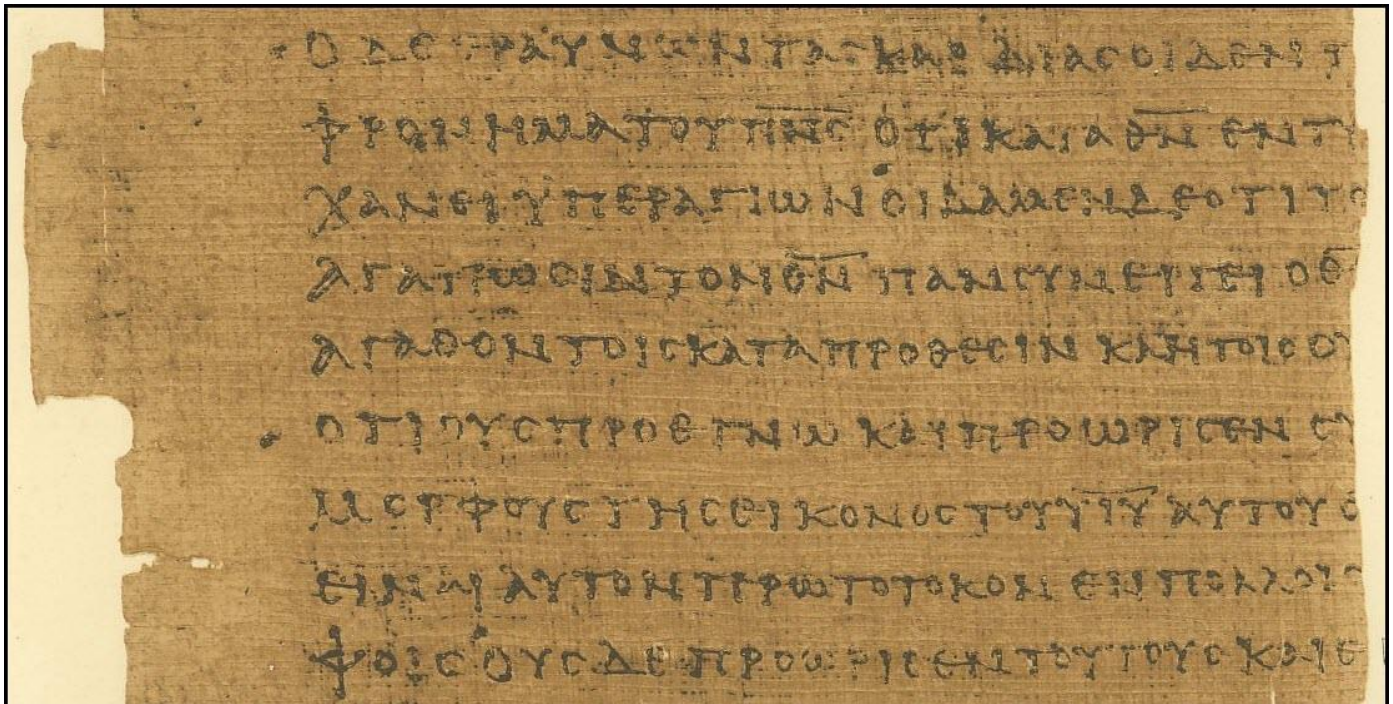 Ο ΔΕ ΕΡΑΥΝΩΝ ΤΑΣ ΚΑΡΔΙΑΣ ΟΙΔΕΝ Τ
ΦΡΟΝΗΜΑ ΤΟΥ ΠΝΣ ΟΤΙ ΚΑΤΑ ΘΝ ΕΝΤΥ
ΧΑΝΕΙ ΥΠΕΡ ΑΓΙΩΝ ΟΙΔΑΜΕΝ ΔΕ ΟΤΙ ΤΟ
ΑΓΑΠΩΣΙΝ ΤΟΝ ΘΝ ΠΑΝ ΣΥΝΕΡΓΕΙ Ο Θ
ΑΓΑΘΟΝ ΤΟΙΣ ΚΑΤΑ ΠΡΟΘΕΣΙΝ ΚΛΗΤΟΙΣ ΟΥ
ΟΤΙ ΟΥΣ ΠΡΟΕΓΝΩ ΚΑΙ ΠΡΟΩΡΙΣΕΝ ΣΥ
ΜΟΡΦΟΥΣ ΤΗΣ ΕΙΚΟΝΟΣ ΤΟΥ ΥΙΥ ΑΥΤΟΥ Ε
ΕΙΝΑΙ ΑΥΤΟΝ ΠΡΩΤΟΤΟΚΟΝ ΕΝ ΠΟΛΛΟΙΣ
ΦΟΙΣ ΟΥΣ ΔΕ ΠΡΟΩΡΙΣΕΝ ΤΟΥΤΟΥΣ ΚΑΙ Ε